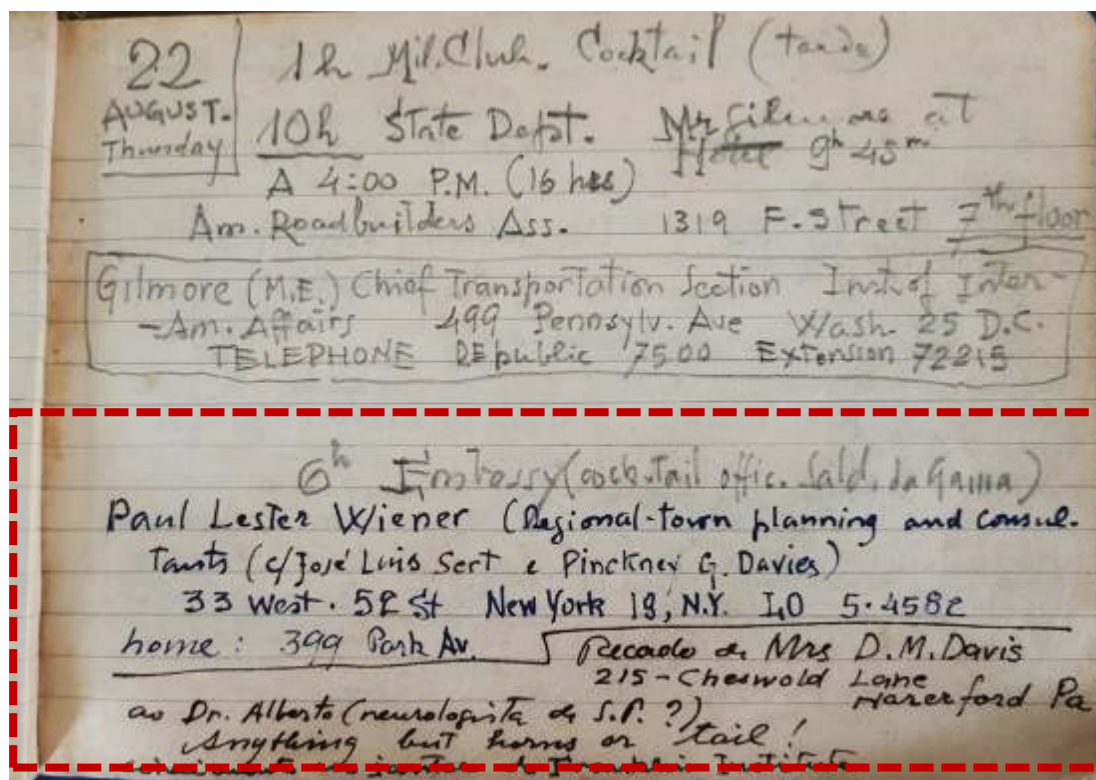 22 1h Mil. Club. Cocktail (tarde)
AUGUST.
Thursday
10h State Dept. Mr Gilmore at
Hotel 9h 45m
A 4:00 P.M. (16 hrs)
Am. Roadbuilders Ass. 1319 F. Street 7th floor
Gilmore (M.E.) Chief Transportation Section Inst. of Inter-
-Am. Affairs 499 Pennsylv. Ave Wash. 25 D.C.
TELEPHONE REpublic 7500 Extension 72215
6h Embassy (cocktail offic. Sald. da Gama)
Paul Lester Wiener (Regional-town planning and consul.
tants (c/ José Luis Sert e Pinckney G. Davies)
33 West. 52 St New York 19, N.Y. LO 5.4582
home: 399 Park Av.
Recado de Mrs D.M. Davis
215 - Cheswold Lane
Haverford Pa
ao Dr. Alberto (neurologista de S.P. ?)
Anything but horns or tail!
jantar do Franklin Institute